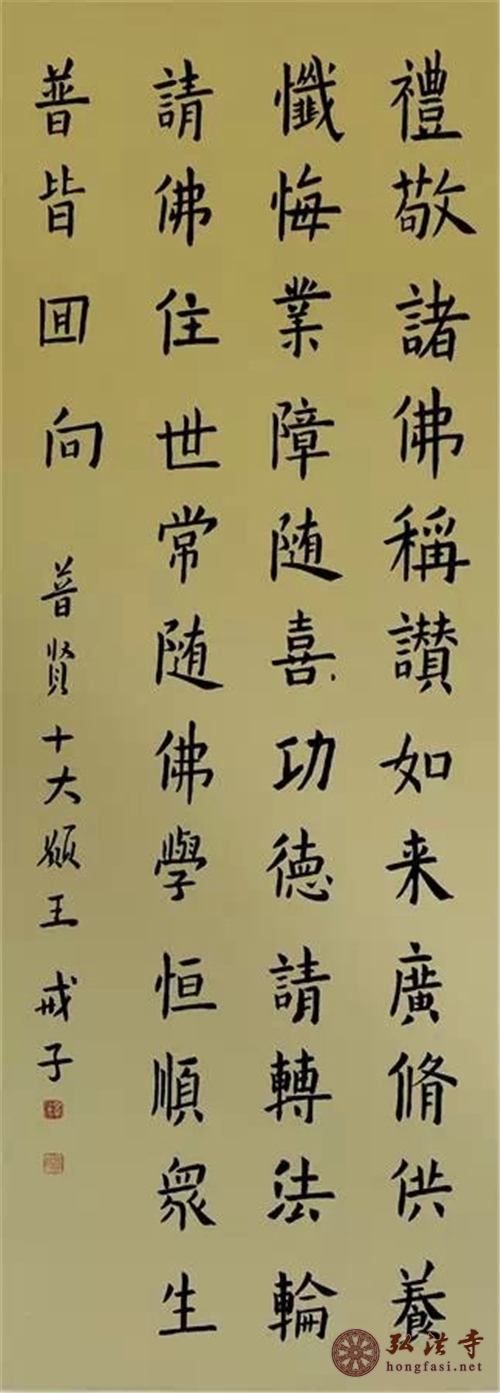 禮敬諸佛稱讃如来廣脩供養
懺悔業障随喜功德請轉法輪
請佛住世常随佛學恒順眾生
普皆囬向
普賢十大願王 戒子
弘法寺
hongfasi.net